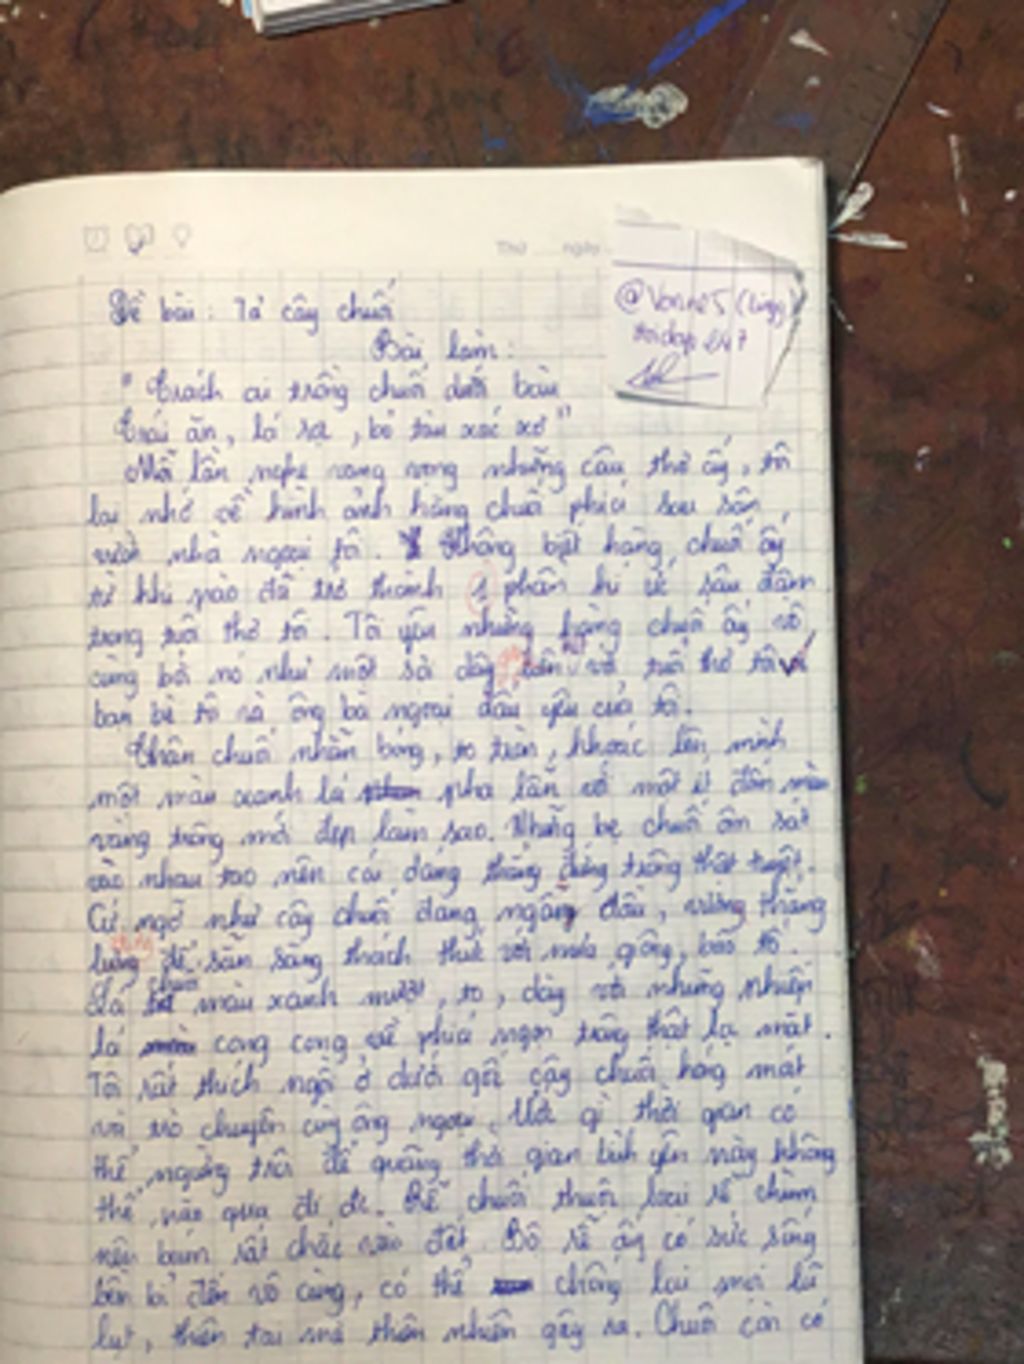 Thứ ngày
@Vonne5 (Ling)
Đề bài: Tả cây chuối
Bài làm:
"Trách ai trồng chuối dưới bàu
Trái ăn, lá rọt, bỏ tàu xác xơ"
Mỗi lần nghe vang vọng những câu thơ ấy, tôi
lại nhớ về hình ảnh hàng chuối phía sau sân
vườn nhà ngoại tôi. Không biết hàng chuối ấy
từ khi nào đã trở thành 1 phần kí ức sâu đậm
trong tuổi thơ tôi. Tôi yêu những hàng chuối ấy vô
cùng bởi nó như một sợi dây với tuổi thơ tôi
bạn bè tôi và ông bà ngoại dấu yêu của tôi.
Thân chuối nhẵn bóng, to tròn, khoác lên mình
một màu xanh lá pha lẫn với một ít đốm màu
vàng trông mới đẹp làm sao. Những bẹ chuối ôm sát
vào nhau tạo nên cái dáng thẳng đứng trông thật tuyệt.
Cứ ngỡ như cây chuối đang ngẩng đầu, thẳng
lưng để sẵn sàng thách thức với mưa giông, bão tố.
Lá chuối màu xanh mướt, to, dày với những phiến
lá cong cong về phía ngọn trông thật lạ mắt.
Tôi rất thích ngồi ở dưới gốc cây chuối hóng mát
và trò chuyện cùng ông ngoại. Ước gì thời gian có
thể ngừng trôi để quãng thời gian bình yên này không
thể nào qua đi. Rễ chuối thuộc loại rễ chùm
nên bám rất chắc vào đất. Bộ rễ ấy có sức sống
bền bỉ đến vô cùng, có thể chống lại mọi lũ
lụt, thiên tai mà thiên nhiên gây ra. Chuối còn có